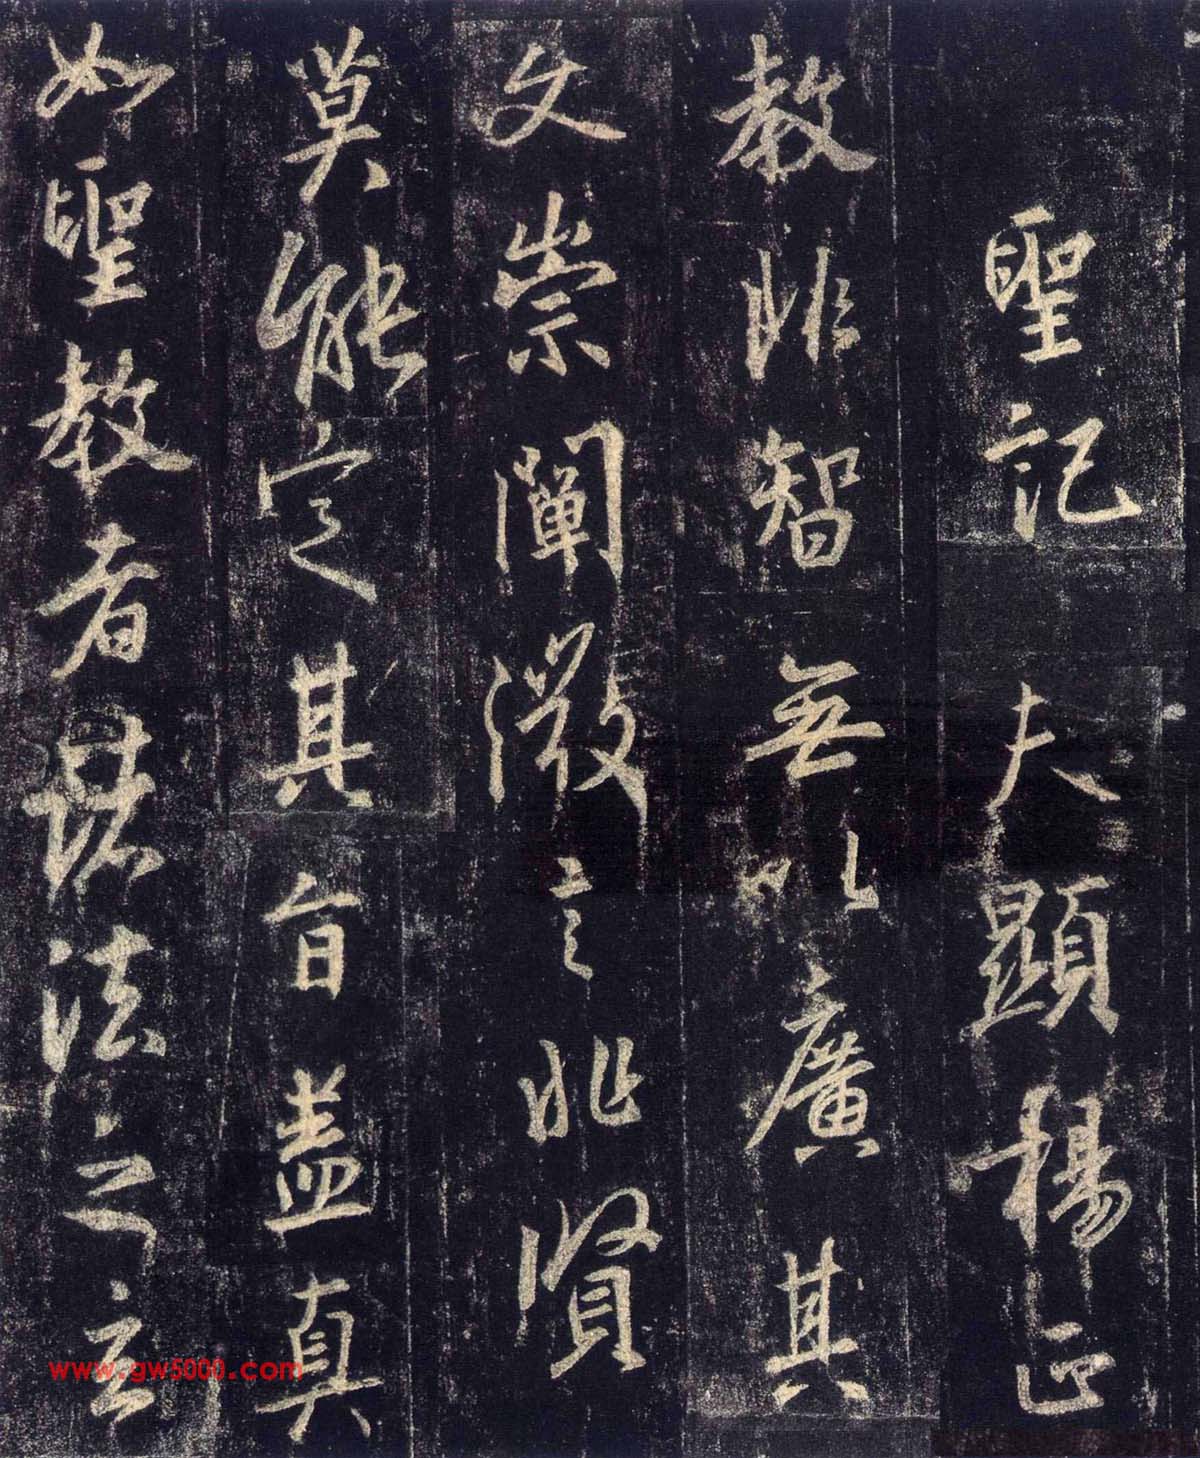 聖記 夫顯揚正
教非智無以廣其
文崇闡微言非賢
莫能定其旨盖真
如聖教者諸法之玄
www.gw5000.com